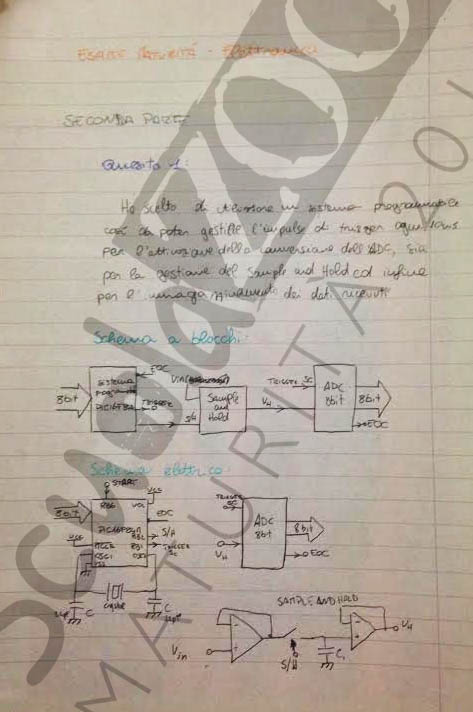 ESAME MATURITÀ - Elettronica
SECONDA PARTE
Quesito 1:
Ho scelto di utilizzare un sistema programmabile
così da poter gestire l'impulso di trigger ogni 10ms
per l'attivazione della conversione dell'ADC, sia
per la gestione del Sample and Hold ed infine
per l'immagazzinamento dei dati ricevuti
Schema a blocchi:
8bit
sistema
PIC16F84
EOC
TRIGGER
S/H
Sample
and
Hold
VH
TRIGGER SC
ADC
8bit
8bit
EOC
Schema elettrico:
START
VCC
8bit
RB0
VCC
EOC
S/H
VCC
MCLR
RB1
TRIGGER
SC
OSC1
C
C
22pF
TRIGGER
SC
VH
ADC
8bit
8bit
EOC
SAMPLE AND HOLD
Vin
S/H
C
VH
Scuola ZOO
MATURITÀ 201